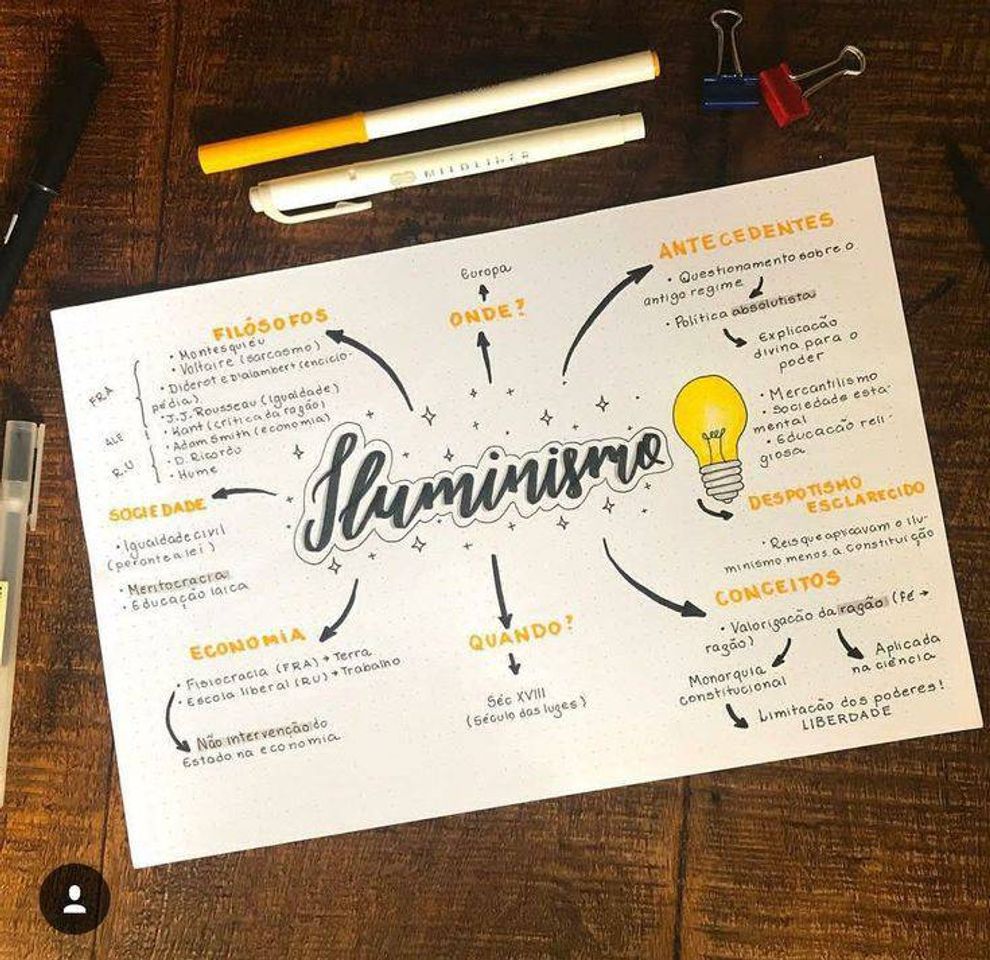 MILDLINER
ANTECEDENTES
• Questionamento sobre o
antigo regime
• Política absolutista
Explicação
divina para o
poder
• Mercantilismo
• Sociedade esta-
mental
• Educação reli
giosa
Europa
ONDE?
FILÓSOFOS
• Montesquieu
• Voltaire (sarcasmo)
• Diderot e Dialambert (enciclo-
pédia)
• J.J. Rousseau (igualdade)
• Kant (crítica da razão)
• Adam Smith (economia)
• D. Ricardo
• Hume
FRA
ALE
R.U
Iluminismo
SOCIEDADE
• Igualdade civil
(perante a lei)
• Meritocracia
• Educação laica
DESPOTISMO
ESCLARECIDO
• Reis que aplicavam o ilu-
minismo menos a constituição
CONCEITOS
• Valorização da razão (fé →
razão)
Monarquia
constitucional
Aplicada
na ciência
Limitação dos poderes!
LIBERDADE
QUANDO?
Séc XVIII
(século das luzes)
ECONOMIA
• Fisiocracia (FRA) → Terra
• Escola liberal (RU) → Trabalho
Não intervenção do
Estado na economia